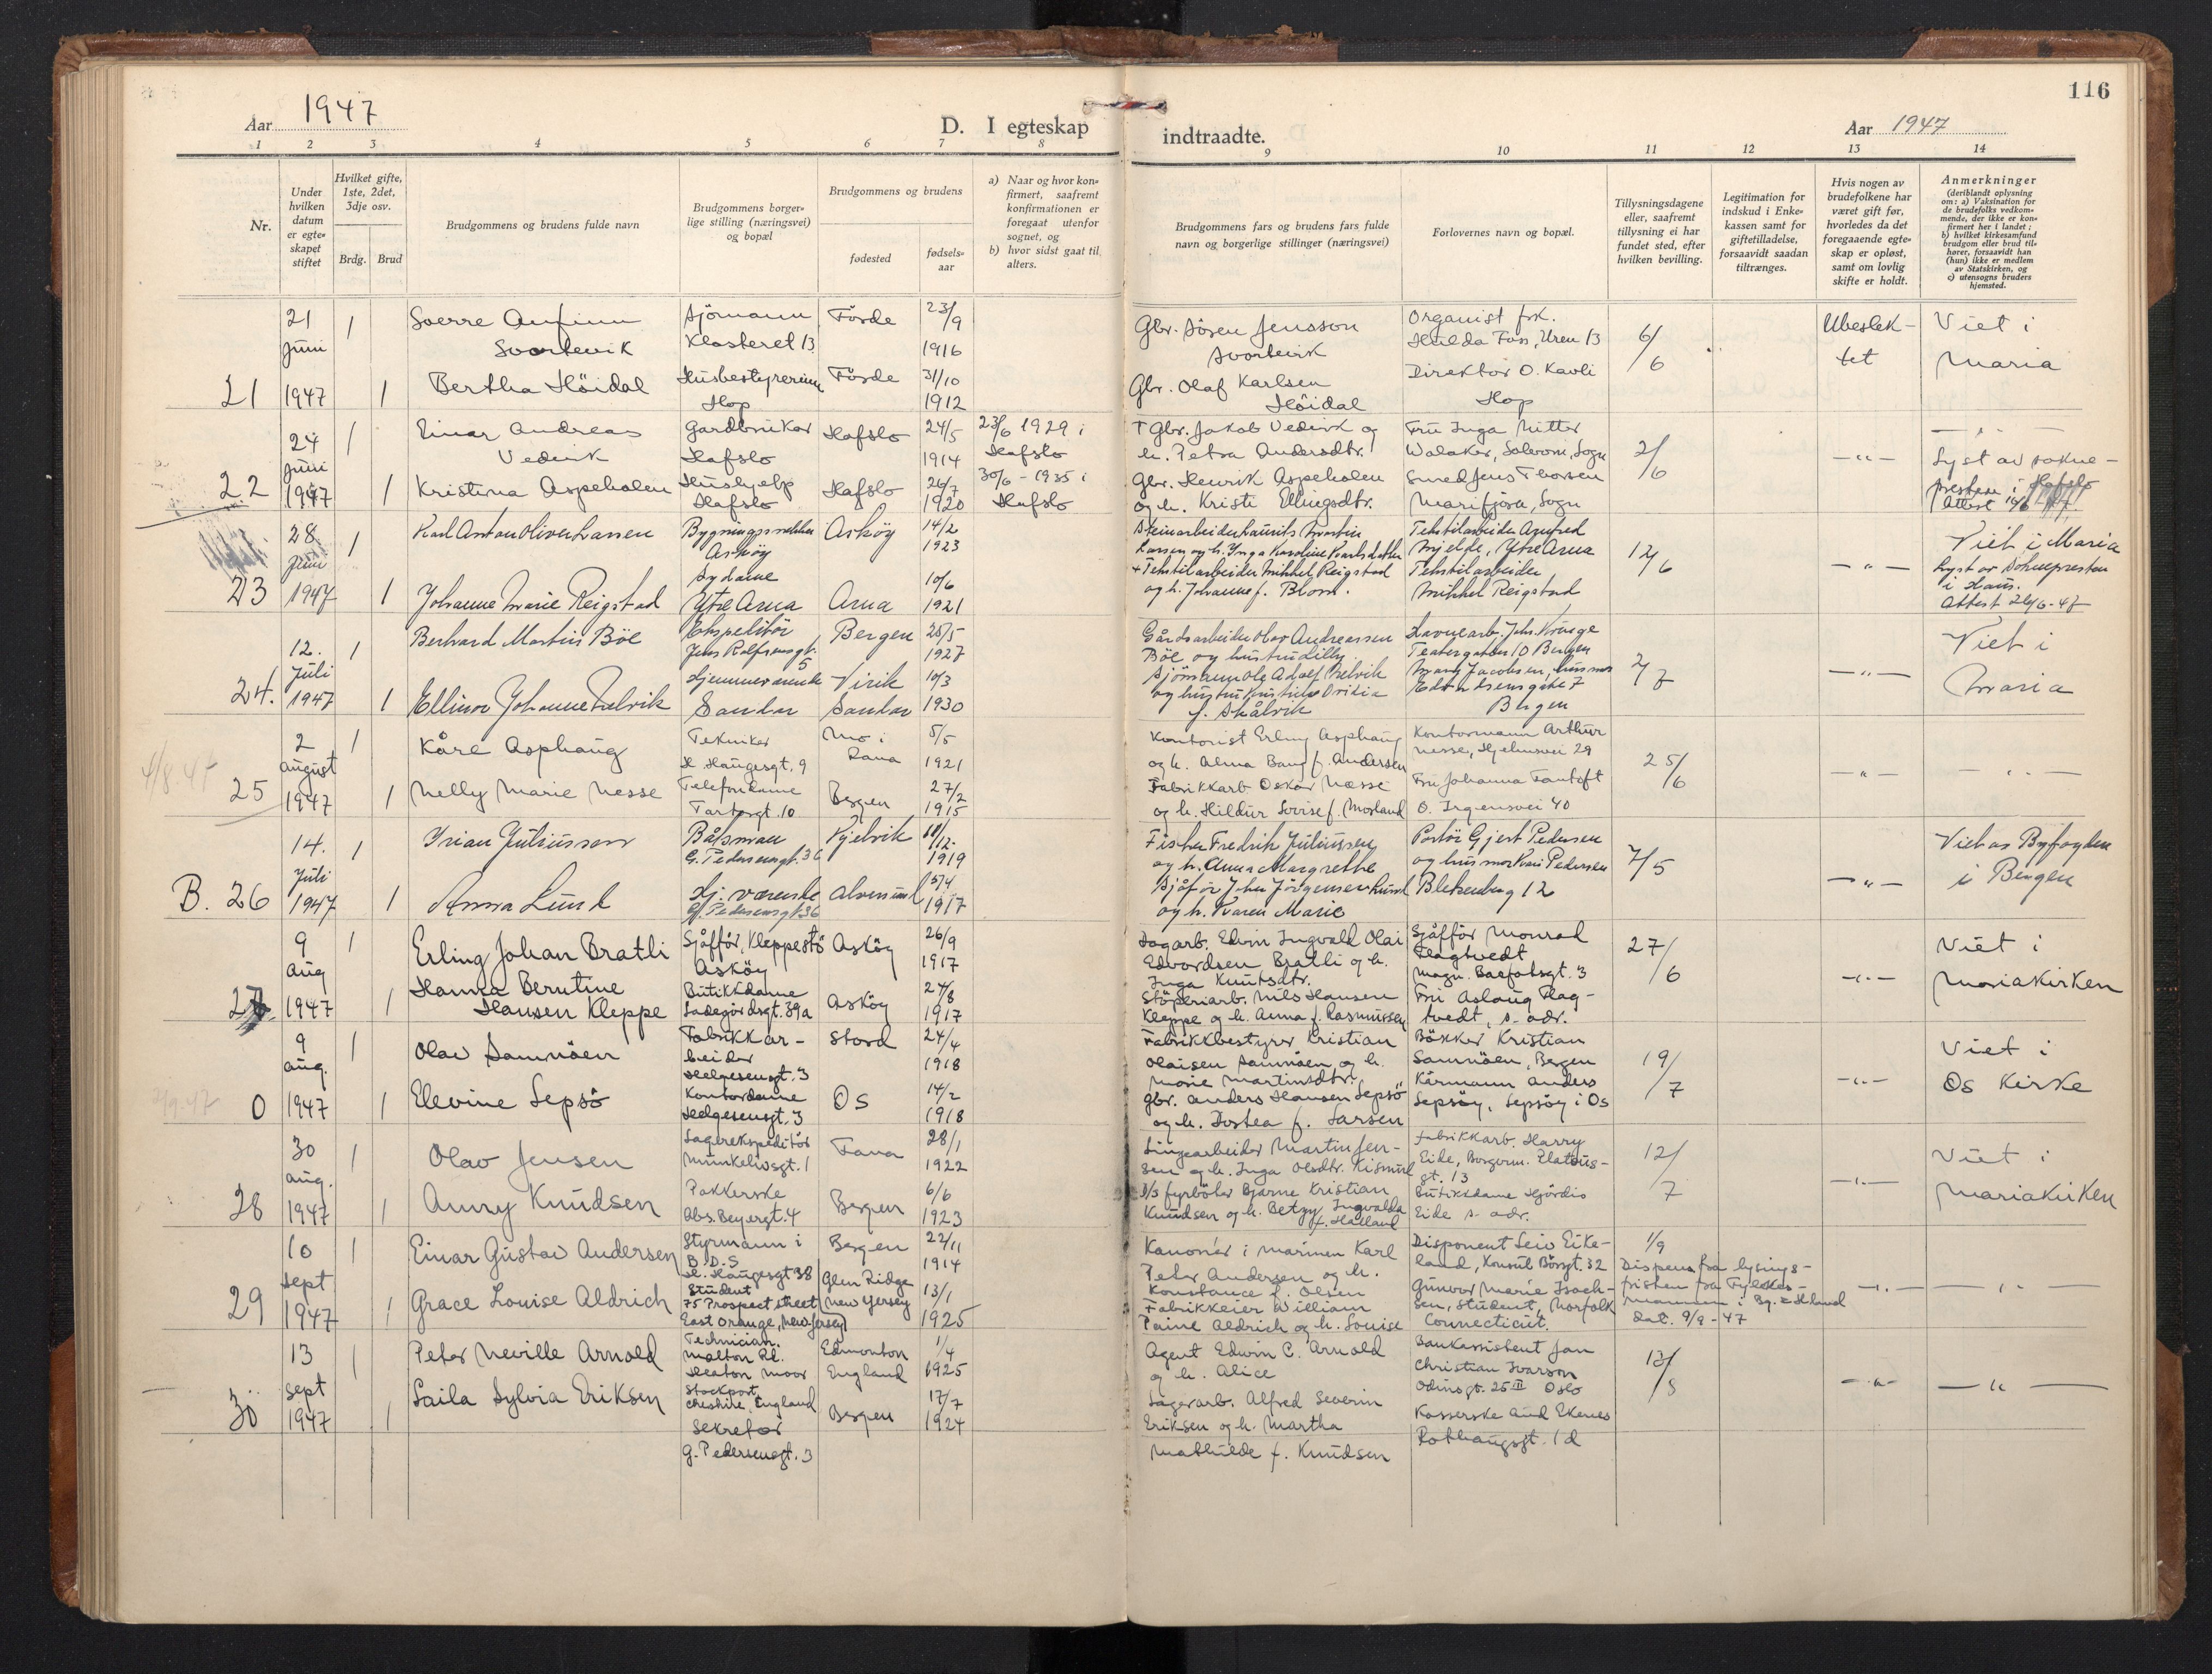 116
Aar 1947
D. I egteskap indtraadte.
Aar 1947
1 2 3 4 5 6 7 8 9 10 11 12 13 14
Nr.
Under hvilken datum er egte-skapet stiftet
Hvilket gifte, 1ste, 2det, 3dje osv.
Brdg. Brud
Brudgommens og brudens fulde navn
Brudgommens borger-lige stilling (næringsvei) og bopæl
Brudgommens og brudens
fødested
fødsels-aar
a) Naar og hvor kon-firmert, saafremt konfirmationen er foregaat utenfor sognet, og
b) hvor sidst gaat til alters.
Brudgommens fars og brudens fars fulde navn og borgerlige stillinger (næringsvei)
Forlovernes navn og bopæl.
Tillysningsdagene eller, saafremt tillysning ei har fundet sted, efter hvilken bevilling.
Legitimation for indskud i Enke-kassen samt for giftetilladelse, forsaavidt saadan tiltrænges.
Hvis nogen av brudefolkene har været gift før, hvorledes da det foregaaende egte-skap er opløst, samt om lovlig skifte er holdt.
Anmerkninger
(deriblandt oplysning om: a) Vaksination for de brudefolks vedkom-mende, der ikke er kon-firmert her i landet; b) hvilket kirkesamfund brudgom eller brud til-hører, forsaavidt han (hun) ikke er medlem av Statskirken, og c) utensogns bruders hjemsted.
21
21 Juni 1947
1
Sverre Anfinn Svortevik
Sjömann Klosteret 13
Förde
23/9 1916
Gbr. Sören Jensson Svortevik
Organist frk. Hulda Foss, Uren 13
6/6
Ubeslek-tet
Viet i Maria
1
Bertha Höidal
Husbestyrerinne Hop
Förde
31/10 1912
Gbr. Olaf Karlsen Höidal
Direktör O. Kavli Hop
22
24 Juni 1947
1
Einar Andreas Vedvik
Gardbruker Hafslo
Hafslo
24/5 1914
23/6 1929 i Hafslo
+ Gbr. Jakob Vedvik og h. Petra Andersdtr.
Fru Inga Nitter Walaker, Solvorn, Sogn
2/6
— " —
Lyst av sokne-presten i Hafslo
1
Kristina Aspeholen
Hushjelp Hafslo
Hafslo
26/7 1920
30/6 - 1935 i Hafslo
Gbr. Henrik Aspeholen og h. Kristi Ellingsdtr.
Smed Jens Thorsen Marifjöra, Sogn
23
28 Juni 1947
1
Karl Anton Oliver Larsen
Bygningssnekker Asköy
Asköy
14/2 1923
Steinarbeider Laurits Martin Larsen og h. Inga Karoline Karlsdatter
Tekstilarbeider Agnfred Mjelde, Ytre Arna
12/6
— " —
Viet i Maria
Lyst av Soknepresten i Haus.
Attest 26/6-47
1
Johanne Marie Reigstad
Sydame Ytre Arna
Arna
10/6 1921
+ Tekstilarbeider Mikkel Reigstad og h. Johanne f. Blom.
Tekstilarbeider Mikkel Reigstad
24.
12. Juli 1947
1
Berhard Martin Böe
Ekspeditör Jens Rolfsensgt. 5
Bergen
25/5 1927
Gårdsarbeider Olav Andreassen Böe og hustru Lilly.
Teatergaten 10 Bergen
2/7
— " —
Viet i Maria
1
Ellinor Johanne Fuelvik
Hjemmeværende Sandar
Sandar
10/3 1930
f. Skålvik
Bergen
4/8-47
25
2 august 1947
1
Kåre Asphaug
Tekniker H. Haugesgt. 9
Mo i Rana
5/5 1921
Kontorist Erling Asphaug og h. Alma Bang f. Andersen
Kontormann Arthur Nesse, Hjelmsvei 29
25/6
— " —
1
Nelly Marie Nesse
Telefondame Tartargt. 10
Bergen
27/2 1915
Fabrikkarb. Oskar Næsse og h. Hildur Lovise f. Morland
Fru Johanna Fantoft O. Irgensvei 40
B. 26
14. Juli 1947
1
Trian Juliussen
Båtsman G. Pedersensgt. 36
Kjelvik
1919
Fisker Fredrik Juliussen og h. Anna Margrethe
Portör Gjert Pedersen og husmor Kari Pedersen
7/5
— " —
Viet av Byfogden i Bergen
1
Anna Lund
Hj. værende G. Pedersensgt. 36
Alversund
15/4 1917
Sjåför John Jörgensen Lund og h. Karen Marie
Blekenberg 12
27
9 aug 1947
1
Erling Johan Bratli
Sjåffór, Kleppestö Asköy
Asköy
26/9 1917
Dagarb. Edvin Ingvald Olai Edvardsen Bratli og h. Inga Knutsdtr.
Sjåffór Monrad Flagtvedt Magn. Barfotsgt. 3
27/6
— " —
Viet i Mariakirken
1
Hanna Berntine Hansen Kleppe
Butikkdame Ladegårdsgt. 39a
Asköy
24/8 1917
Stöperiarb. Nils Hansen Kleppe og h. Anna f. Rasmussen
Fru Aslaug Flag-tvedt, s. adr.
0
9 aug. 1947
1
Olav Samnöen
Fabrikkar-beider Helgesensgt. 3
Stord
24/4 1918
Fabrikkbestyrer Kristian Olaisen Samnöen og h. Marie Martinsdtr.
Bökker Kristian Samnöen, Bergen
19/7
— " —
Viet i Os Kirke
1
Elevine Lepsö
Kontordame Helgesensgt. 3
Os
14/2 1918
Gbr. Anders Hansen Lepsö og h. Dortea f. Larsen
Kårmann Anders Lepsöy, Lepsöy i Os
28
30 aug. 1947
1
Olav Jensen
Lagerekspeditör Munkelivsgt. 1
Fana
28/1 1922
Linjearbeider Martin Jen-sen og h. Inga Olsdtr. Kismul
Fabrikkarb. Harry Eide, Borgerm. Platous-gt. 13
12/7
— " —
Viet i Mariakirken
1
Anny Knudsen
Pakkerske Abs. Beyersgt. 4
Bergen
6/6 1923
D/S fyrböter Bjarne Kristian Knudsen og h. Betzy Ingvalda f. Halland
Butikkdame Hjördis Eide s. adr.
29
10 sept 1947
1
Einar Gustav Andersen
Styrmann i B.D.S. H. Haugesgt 38
Bergen
22/11 1914
Kanonér i Marinen Karl Peter Andersen og h. Konstance f. Olsen
Disponent Leiv Eike-land, Konsul Börsgt. 32
1/9
Dispens fra lysings-fristen fra Fylkes-mannen i Bg. & H.land
Dat. 9/9-47
— " —
1
Grace Louise Aldrich
Student 75 Prospect street East Orange, (New Jersey)
Glen Ridge New Yersey
13/1 1925
Fabrikkeier William Paine Aldrich og h. Louise
Gunvor Marie Isach-sen, Student, Norfolk Connecticut.
30
13 sept 1947
1
Peter Neville Arnold
Technician. Malton Rd. Heaton Moor Stockport, Cheshire, England
Edmonton England
1/4 1925
Agent Edwin C. Arnold og h. Alice
Bankassistent Jan Christian Ivarson Odinsgt. 25 II Oslo
12/8
— " —
1
Laila Sylvia Eriksen
Sekretær G. Pedersensgt. 3
Bergen
17/7 1924
Lagerarb. Alfred Severin Eriksen og h. Martha Mathilde f. Knudsen
Kasserske Aud Ekenes Rothaugsgt. 1d